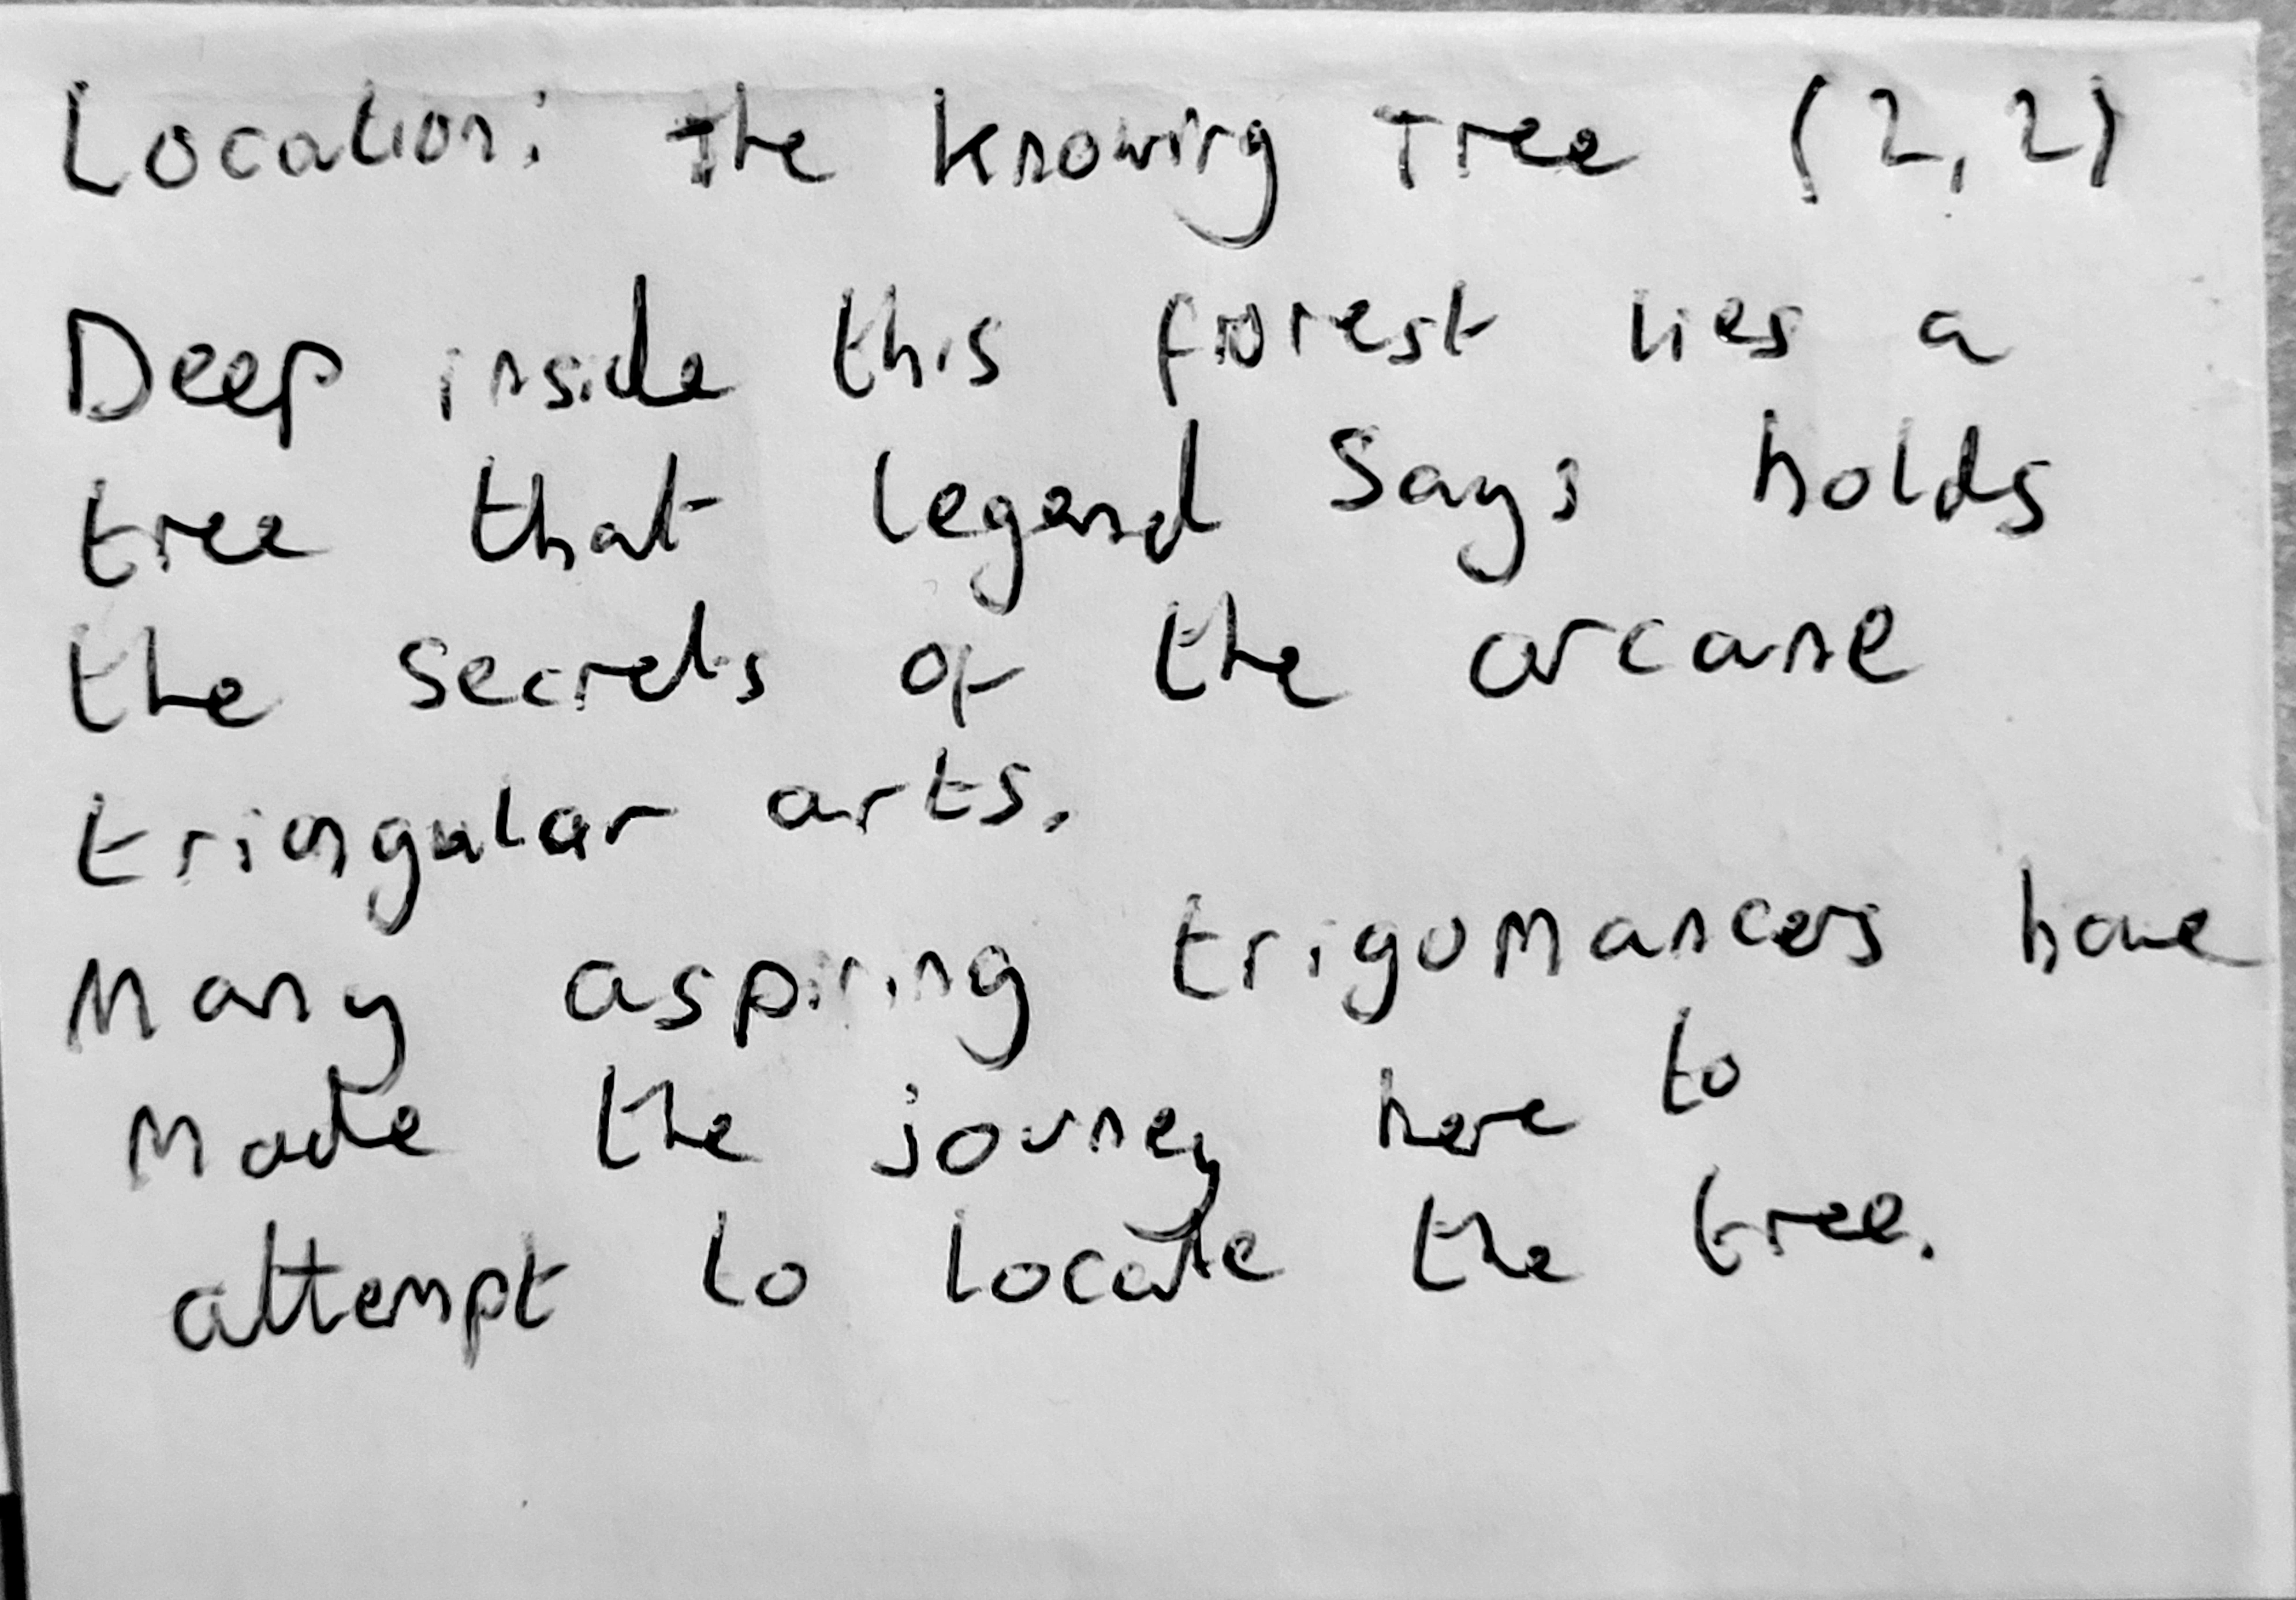 Location: The Knowing Tree (2,2)
Deep inside this forest lies a
tree that legend says holds
the secrets of the arcane
triangular arts.
Many aspiring trigomancers have
made the journey here to
attempt to locate the tree.